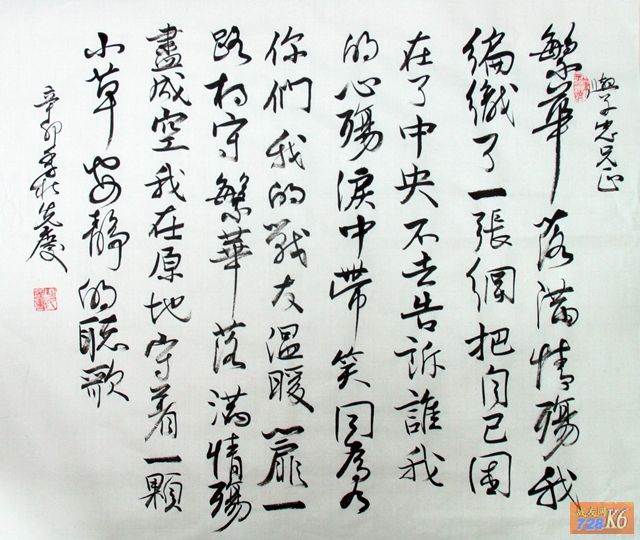 子忠兄正
繁華落滿情殤我
編織了一張網把自己困
在了中央不去告訴誰我
的心殤淚中帶笑因為有
你們我的戰友溫暖心扉一
路相守繁華落滿情殤
盡成空我在原地守着一顆
小草安靜的聽歌
辛卯季秋先慶
战友网
728K6